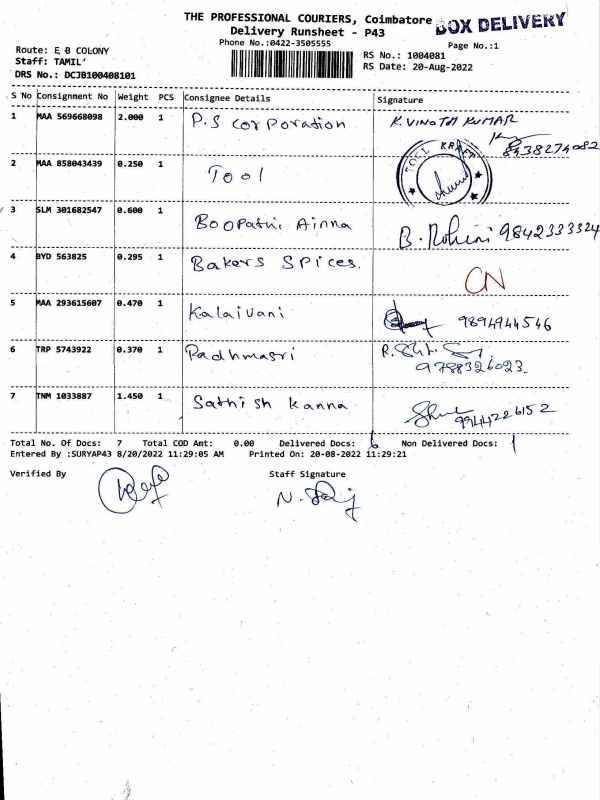 THE PROFESSIONAL COURIERS, Coimbatore
BOX DELIVERY
Delivery Runsheet - P43
Phone No.:0422-3505555
Page No.:1
Route: E B COLONY
Staff: TAMIL'
DRS No.: DCJB100408101
RS No.: 1004081
RS Date: 20-Aug-2022
S No Consignment No Weight PCS Consignee Details Signature
1 MAA 569668098 2.000 1 P.S corporation K. VINOTH KUMAR
8438274082
2 MAA 858043439 0.250 1 Tool
TOOL KRAFT
3 SLM 301682547 0.600 1 Boopathi Ainna B. Rohini 9842333324
4 BYD 563825 0.295 1 Bakers Spices. CN
5 MAA 293615607 0.470 1 Kalaivani 9894944546
6 TRP 5743922 0.370 1 Padhmasri
9788326023
7 TNM 1033887 1.450 1 Sathish Kanna
9944226152
Total No. Of Docs: 7 Total COD Amt: 0.00 Delivered Docs: 6 Non Delivered Docs: 1
Entered By :SURYAP43 8/20/2022 11:29:05 AM Printed On: 20-08-2022 11:29:21
Verified By Staff Signature